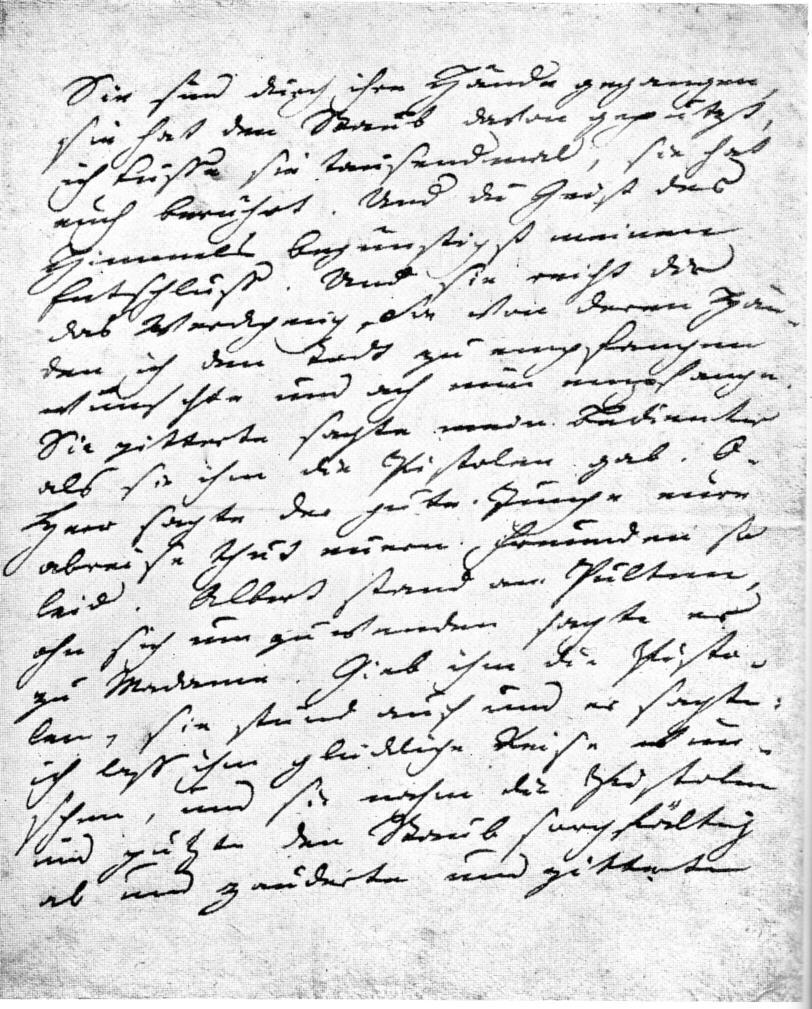 Sie sind durch ihre Hände gegangen,
sie hat den Staub davon geputzt,
ich küsse sie tausendmal, sie hat
euch berührt. Und du Geist des
Himmels begünstigst meinen
Entschluss. Und sie reicht dir
das Werckzeug, Sie von deren Hän-
den ich den Todt zu empfangen
wünschte und ach nun empfange.
Sie zitterte sagte mein Bedienter
als sie ihm die Pistolen gab. O-
Herr sagte der gute Junge eure
abreise thut euern Freunden so
leid. Albert stand am Pulten,
ohn sich um zu wenden sagte er
zu Madame. Gieb ihm die Pisto-
len, sie stund auf und er sagte:
ich lass ihm glückliche Reise wün-
schen, und sie nahm die Pistolen
und putzte den Staub sorgfältig
ab und zauderte und zitterte